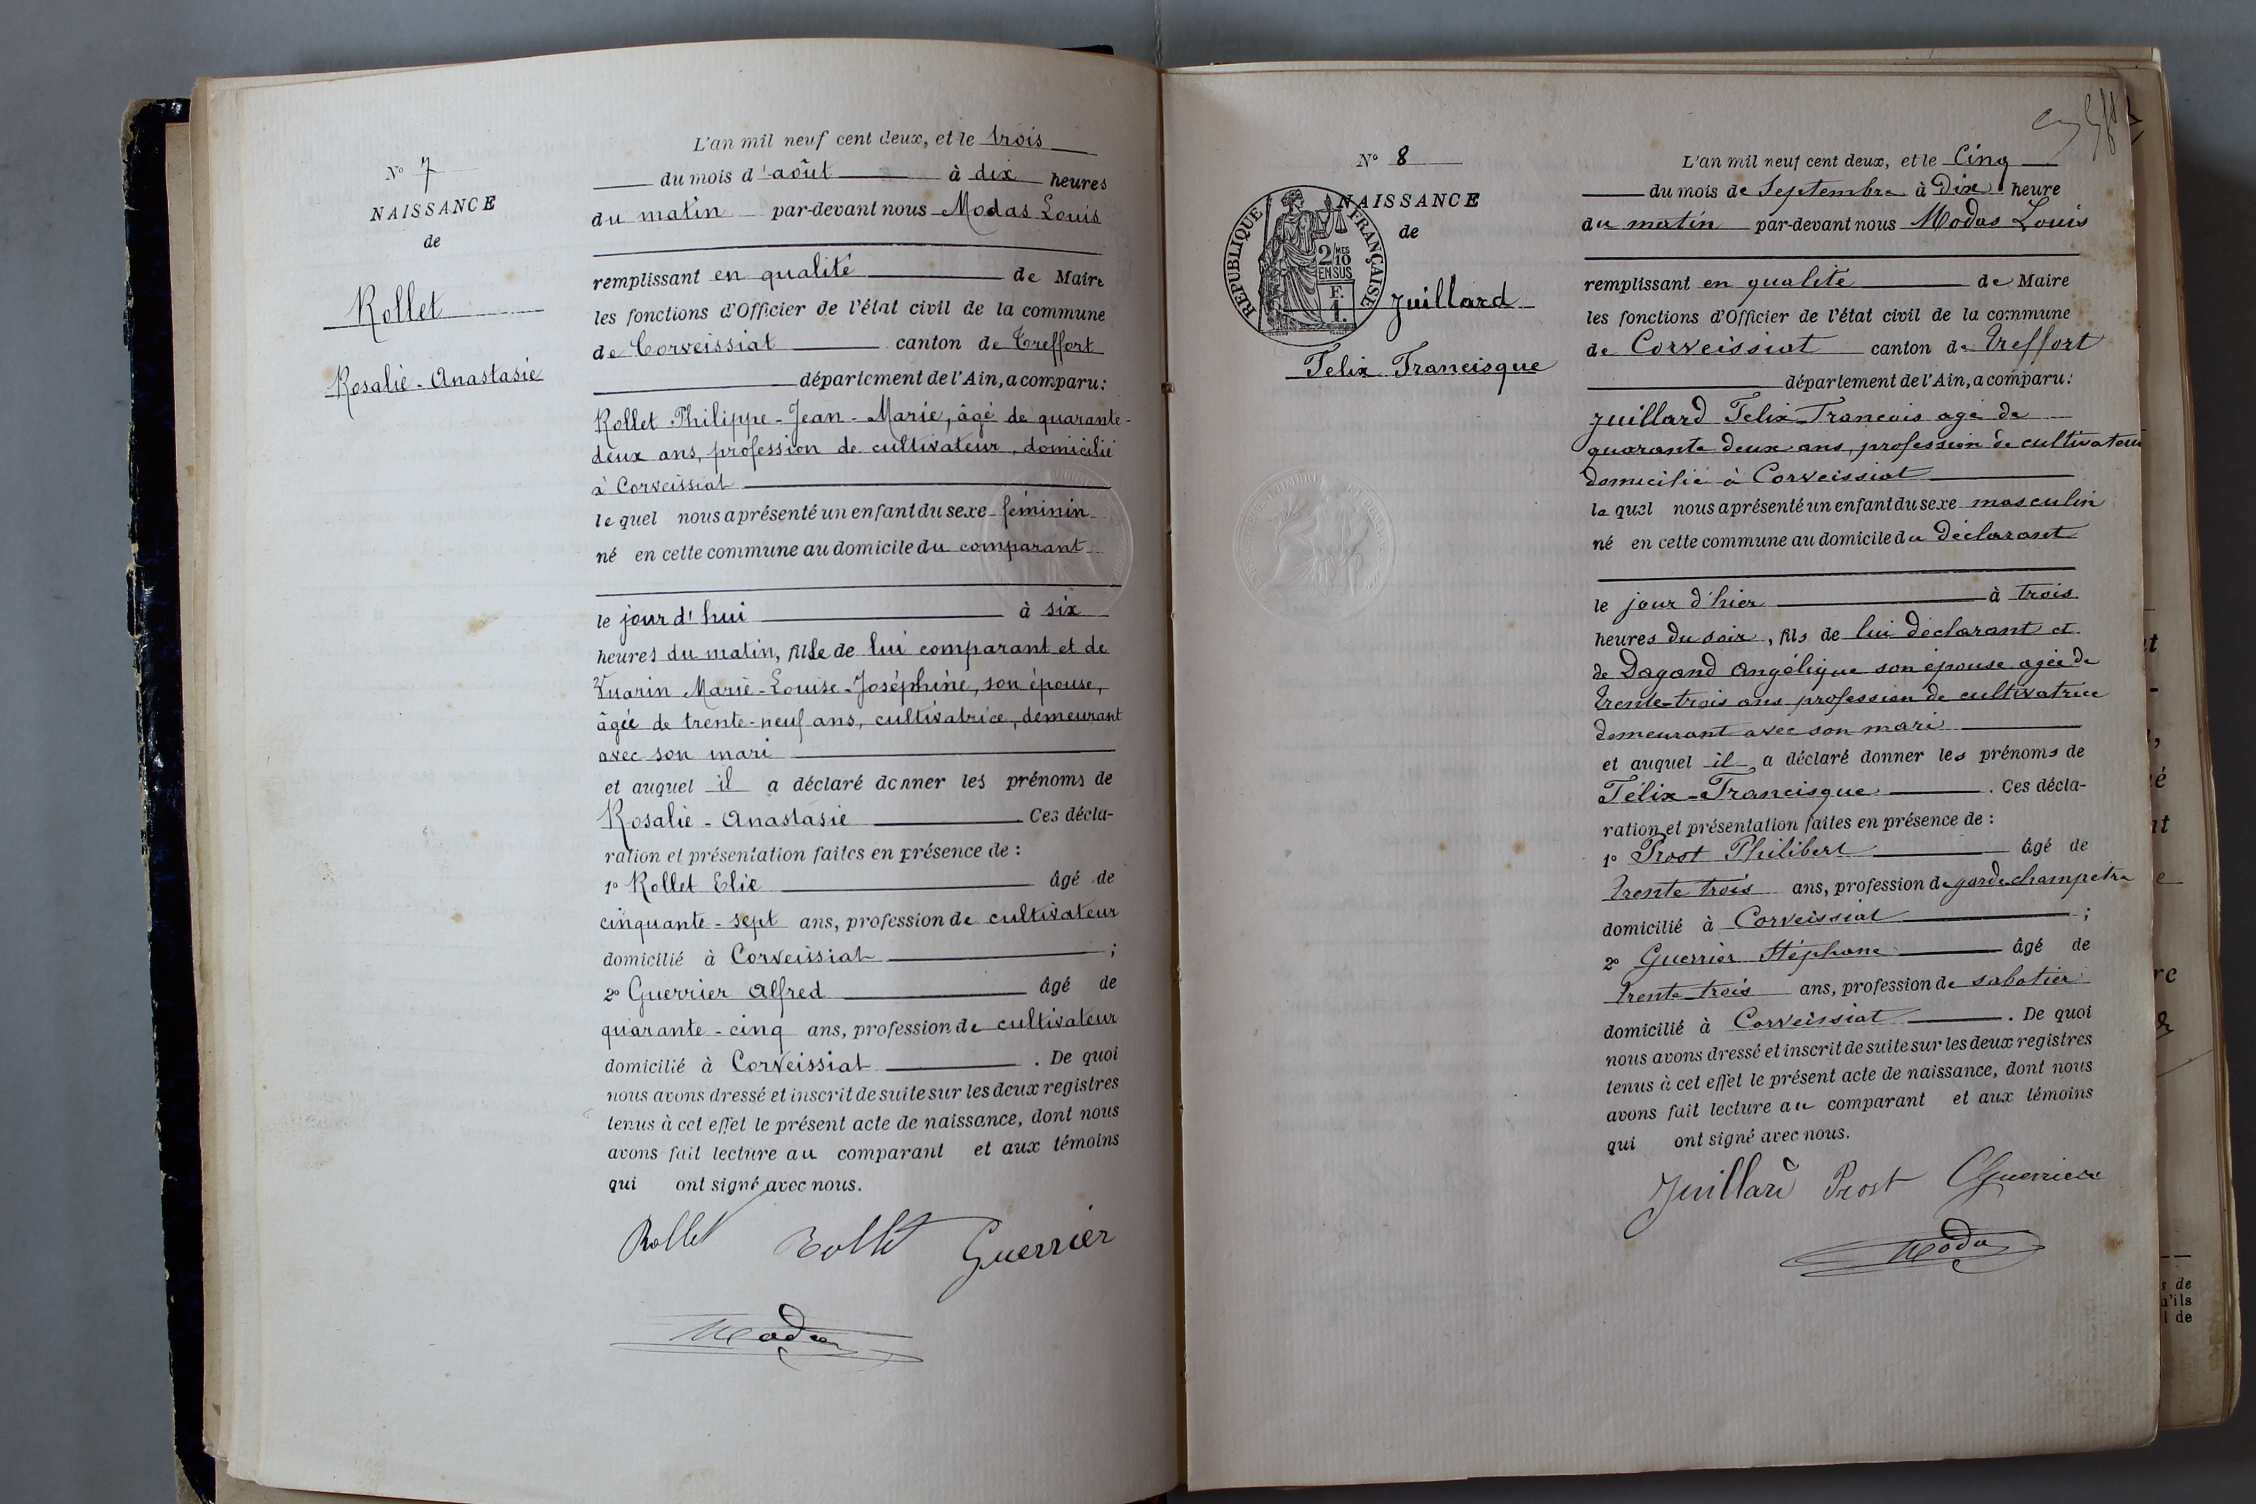 N° 7
NAISSANCE
de
Rollet
Rosalie - Anastasie
L'an mil neuf cent deux, et le trois
du mois d'août à dix heures
du matin par-devant nous Modas Louis
remplissant en qualité de Maire
les fonctions d'Officier de l'état civil de la commune
de Corveissiat canton de Treffort
département de l'Ain, a comparu:
Rollet Philippe-Jean-Marie, âgé de quarante-
deux ans, profession de cultivateur, domicilié
à Corveissiat
le quel nous a présenté un enfant du sexe féminin
né en cette commune au domicile du comparant
le jour d'hui à six
heures du matin, fille de lui comparant et de
Vuarin Marie-Louise-Joséphine, son épouse,
âgée de trente-neuf ans, cultivatrice, demeurant
avec son mari
et auquel il a déclaré donner les prénoms de
Rosalie - Anastasie Ces décla-
ration et présentation faites en présence de :
1° Rollet Elie âgé de
cinquante-sept ans, profession de cultivateur
domicilié à Corveissiat ;
2° Guerrier Alfred âgé de
quarante-cinq ans, profession de cultivateur
domicilié à Corveissiat . De quoi
nous avons dressé et inscrit de suite sur les deux registres
tenus à cet effet le présent acte de naissance, dont nous
avons fait lecture au comparant et aux témoins
qui ont signé avec nous.
Rollet Rollet Guerrier
Modas
N° 8
NAISSANCE
de
RÉPUBLIQUE FRANÇAISE
2/10 MES
EN SUS
F.
1.
Juillard
Felix Francisque
L'an mil neuf cent deux, et le Cinq
du mois de Septembre à Dix heure
du matin par-devant nous Modas Louis
remplissant en qualité de Maire
les fonctions d'Officier de l'état civil de la commune
de Corveissiat canton de Treffort
département de l'Ain, a comparu:
Juillard Felix-Francois agé de
quarante deux ans, profession de cultivateur
domicilié à Corveissiat
le quel nous a présenté un enfant du sexe masculin
né en cette commune au domicile du déclarant
le jour d'hier à trois
heures du soir, fils de lui déclarant et
de Dagand Angélique son épouse agée de
trente-trois ans profession de cultivatrice
demeurant avec son mari
et auquel il a déclaré donner les prénoms de
Félix-Francisque . Ces décla-
ration et présentation faites en présence de :
1° Prost Philibert âgé de
trente trois ans, profession de garde champetre
domicilié à Corveissiat ;
2° Guerrier Stéphane âgé de
trente-trois ans, profession de sabotier
domicilié à Corveissiat . De quoi
nous avons dressé et inscrit de suite sur les deux registres
tenus à cet effet le présent acte de naissance, dont nous
avons fait lecture au comparant et aux témoins
qui ont signé avec nous.
Juillard Prost Guerrier
Modas